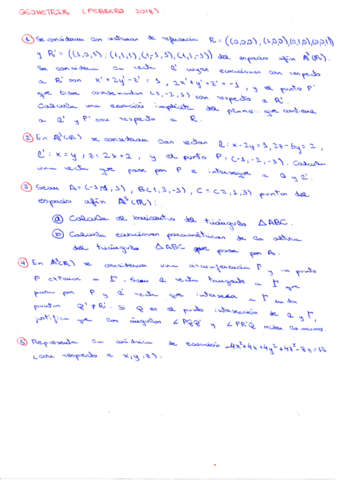 GEOMETRIA (FEBRERO 2018)
① Se consideran los sistemas de referencia R = ((0,0,0), (1,0,0), (0,1,0), (0,0,1))
y R' = ((1,0,1); (1,1,1), (1,-1,1), (1,1,-1)) del espacio afín A³(R).
Se considera la recta l' cuyas ecuaciones con respecto
a R' son x'+2y'-z' = 1, 2x'+y'+z' = -1, y el punto P'
que tiene coordenadas (1,-2,1) con respecto a R'.
Calcula una ecuación implícita del plano que contiene
a l' y P' con respecto a R.
② En A³(R) se consideran las rectas l: x-2y=1, 2z-5y=2,
l': x=y, z=2x+2, y el punto P=(-1,-2,-1). Calcula
una recta que pase por P e interseque a l y l'.
③ Sean A=(-1,1,1), B(1,3,-1), C=(2,1,3) puntos del
espacio afín A³(R):
ⓐ Calcula el baricentro del triángulo △ABC.
ⓑ Calcula ecuaciones paramétricas de la altura
del triángulo △ABC que pase por A.
④ En A²(R) se considera una circunferencia Γ y un punto
P exterior a Γ. Sean l recta tangente a Γ que
pasa por P y l' recta que interseca a Γ en dos
puntos Q' ≠ R'. Si Q es el punto intersección de l y Γ,
justifica que los ángulos ∠PQQ' y ∠PR'Q miden lo mismo.
⑤ Representa la cuádrica de ecuación -4x²+4x+4y²+4z²-8y=13
(con respecto a x,y,z).